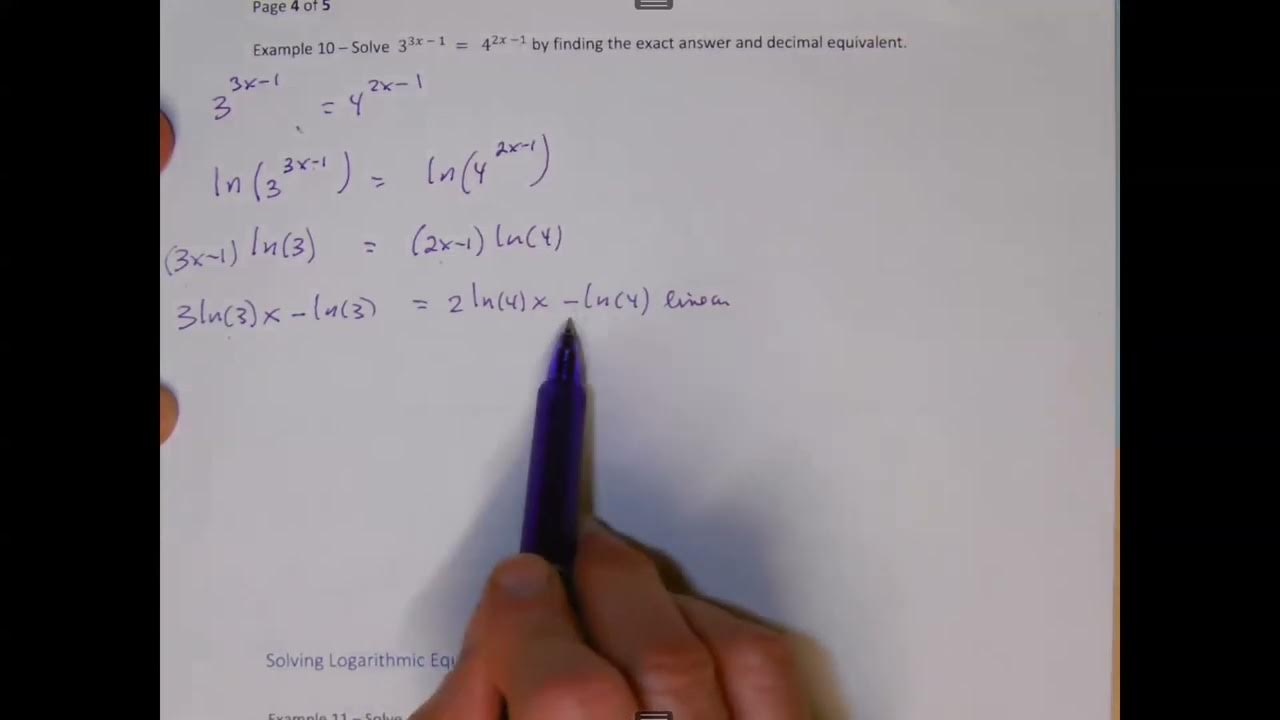 Page 4 of 5
Example 10 – Solve 3^{3x – 1} = 4^{2x – 1} by finding the exact answer and decimal equivalent.
3^{3x-1} = 4^{2x-1}
ln(3^{3x-1}) = ln(4^{2x-1})
(3x-1) ln(3) = (2x-1) ln(4)
3ln(3)x - ln(3) = 2 ln(4)x - ln(4) linear
Solving Logarithmic Equ
Example 11 – Solve